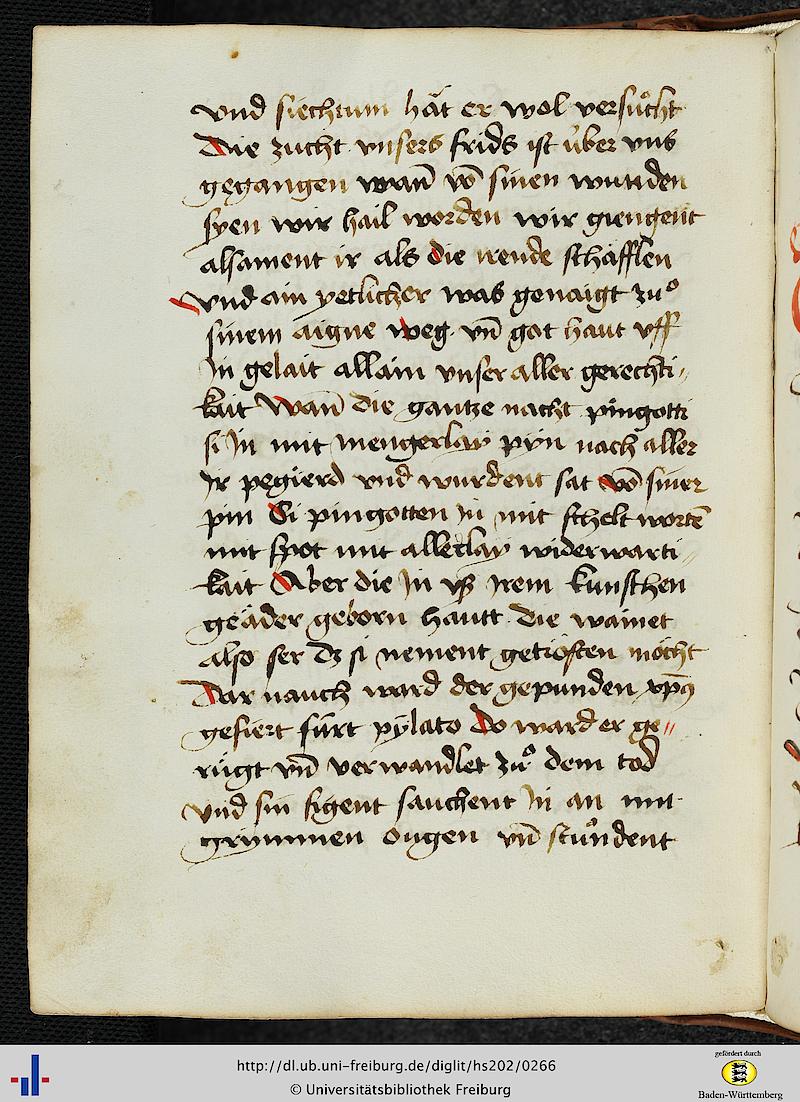 vnd siechtum hät er wol versuͦcht
Die zucht vnsers frids ist über vns
gegangen wañ vō sinen wunden
syen wir hail worden wir giengent
alsament ir als die irende schäfflen
vnd ain yetlicher was genaigt zuͦ
sinem aigne weg. vñ got haut vff
In gelait allain vnser aller gerechti„
kait Wañ die gantze nacht pingotti
si In mit mengerlay pyn nach aller
Ir pegierd vnd wurdent sat vō siner
pin Si pingotten In mit schelt wortē
mit spot mit allerlay widerwarti„
kait Aber die In vß Irem kunschen
geäder geborn hautt die wainet
also ser dz si nement getrösten möcht
Dar nauch ward der gepunden xp̄s
gefiert fúrt pÿlato Do ward er ge„
rúgt vñ verwandlet zuͦ dem tod
vnd sin figent sauchent In an mit
grymmen ougen vñ stuͦndent
http://dl.ub.uni-freiburg.de/diglit/hs202/0266
© Universitätsbibliothek Freiburg
gefördert durch
Baden-Württemberg